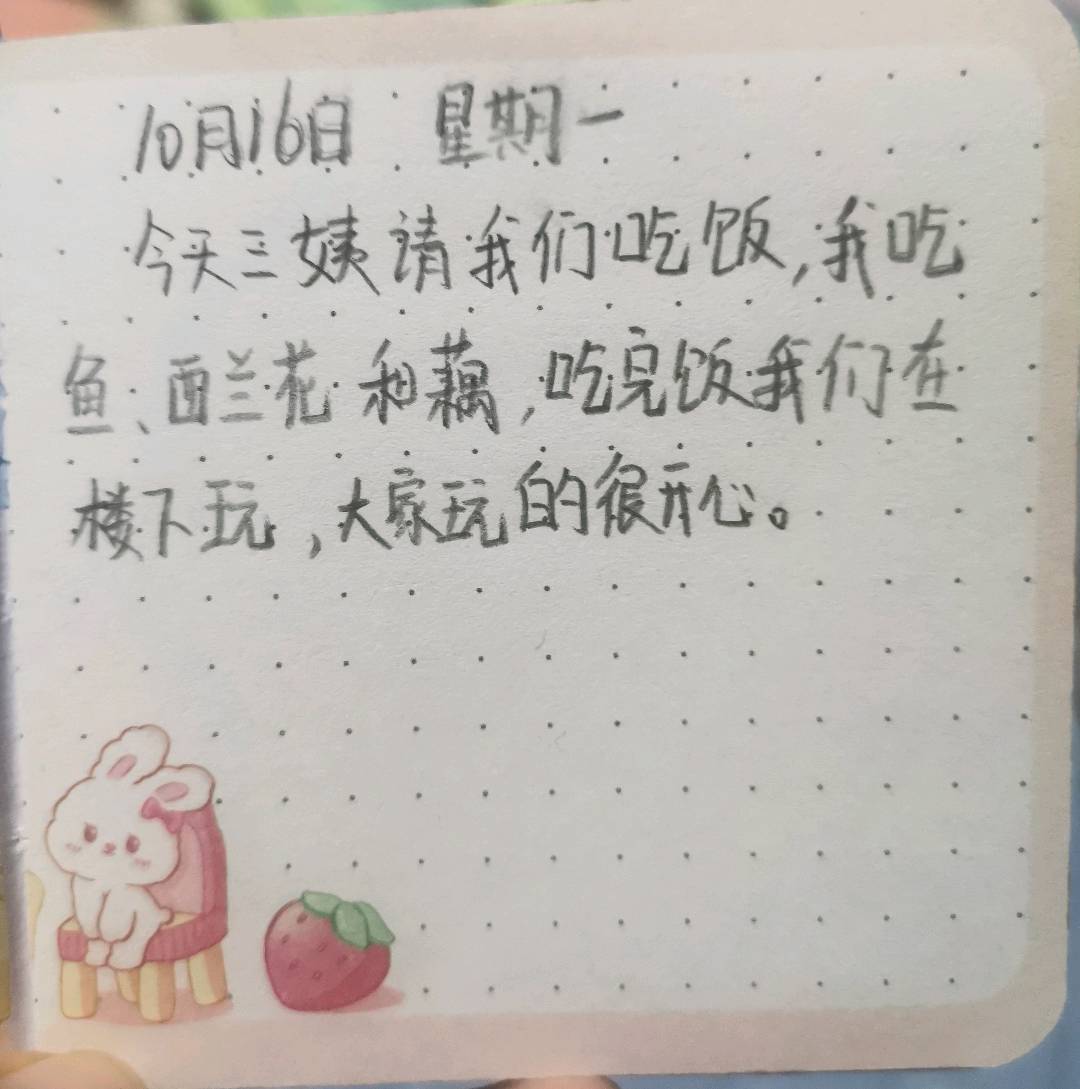 10月16日 星期一
今天三姨请我们吃饭,我吃
鱼、西兰花和藕,吃完饭我们在
楼下玩,大家玩的很开心。